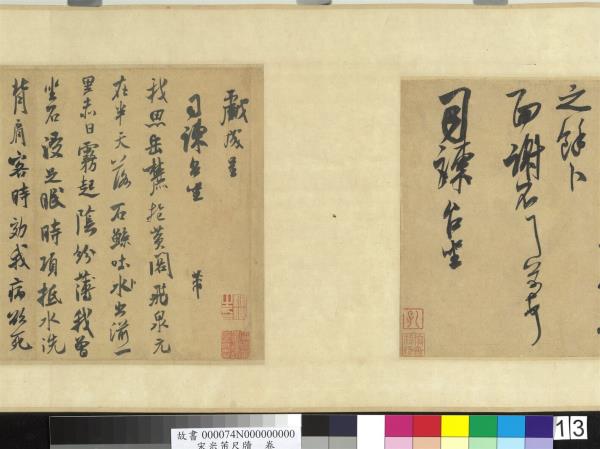 之餘卜
面謝不一芾頓首
司諫台坐
戲成呈
司諫台坐
芾
我思岳麓抱黃閣飛泉元
在半天落石鯨吐水出湔一
里赤日霧起陰紛薄我曾
坐石浸足眠時項抵水洗
背肩客時效我病欲死
故書 000074N000000000
宋米芾尺牘 卷
13